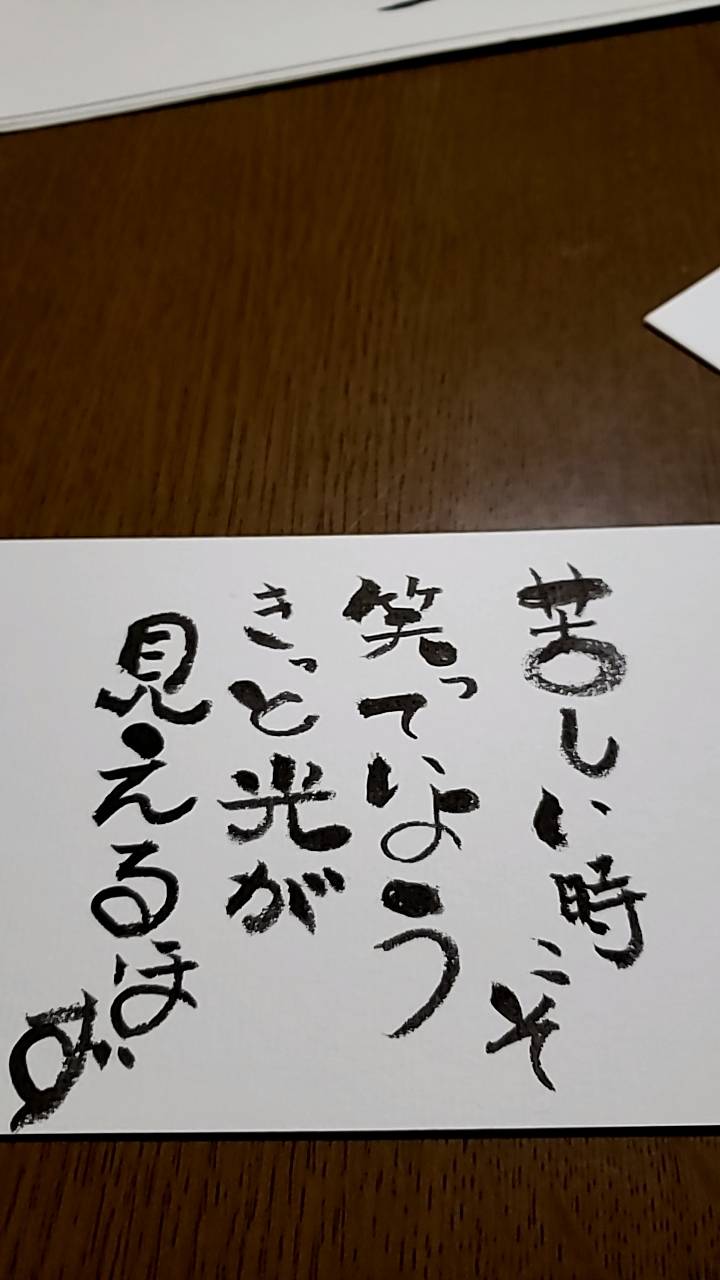 苦しい時こそ
笑っていよう
きっと光が
見えるはず